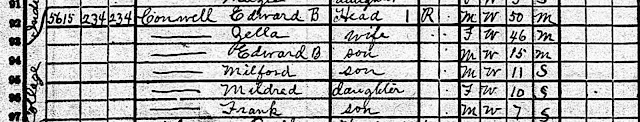 92 5615 234 234 Conwell Edward B Head 1 R M W 50 M
93 — Zella wife F W 46 M
94 — Edward B son M W 15 M
95 — Milford son M W 11 S
96 — Mildred daughter F W 10 S
97 — Frank son M W 7 S
College